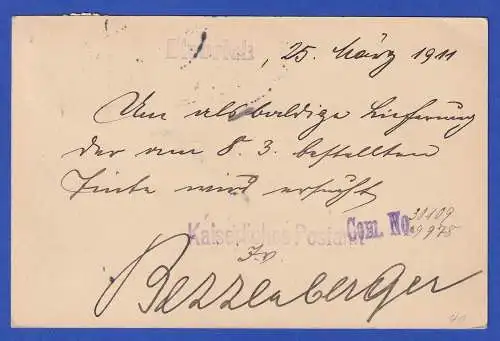 , 25. März 1911
Um alsbaldige Lieferung
der am 8. 3. bestellten
Tinte wird ersucht
Kaiserliches Postamt Com. No.
I. V.
Bezzenberger